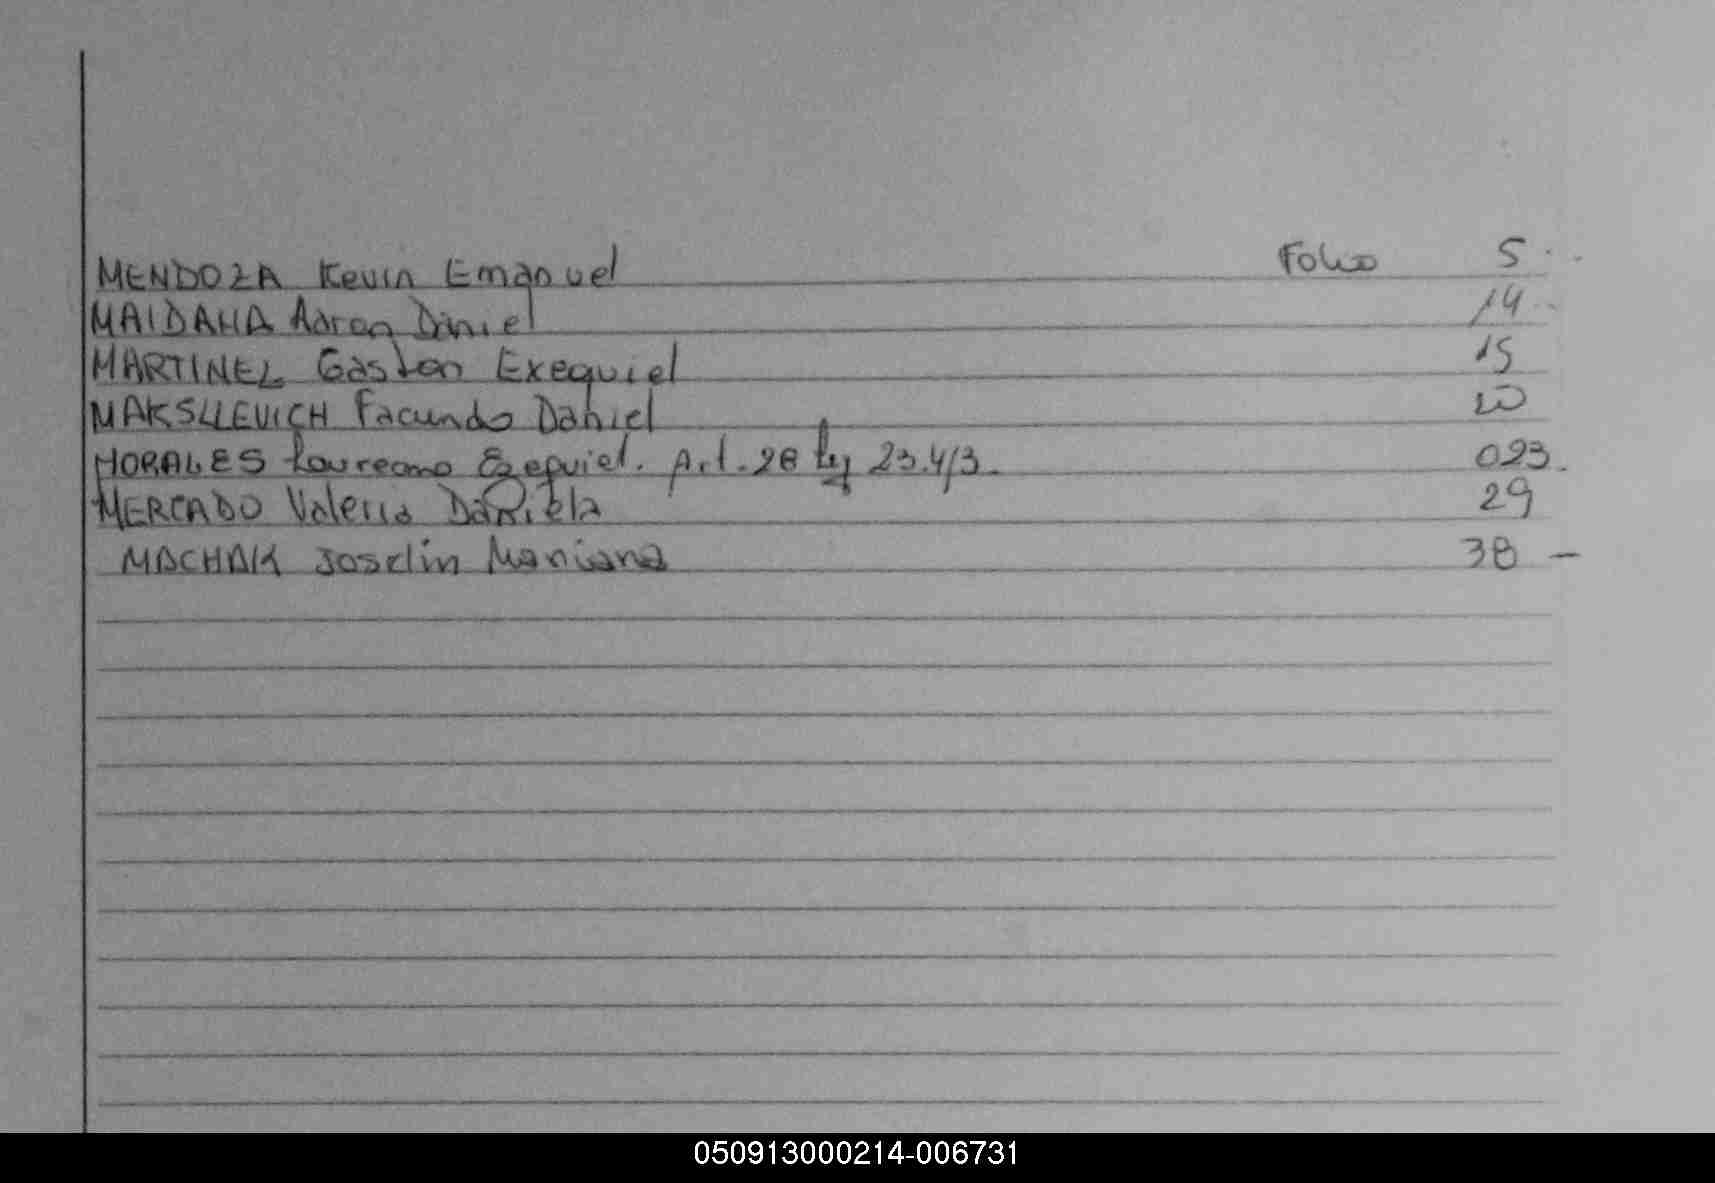 MENDOZA Kevin Emanuel Folio 5
MAIDANA Aaron Daniel 14
MARTINEZ Gaston Exequiel 15
MAKSLLEVICH Facundo Daniel 20
MORALES Laureano Ezequiel. Art. 28 Ley 23.413. 023.
MERCADO Valeria Daniela 29
MACHAK Joselin Mariana 38 -
050913000214-006731